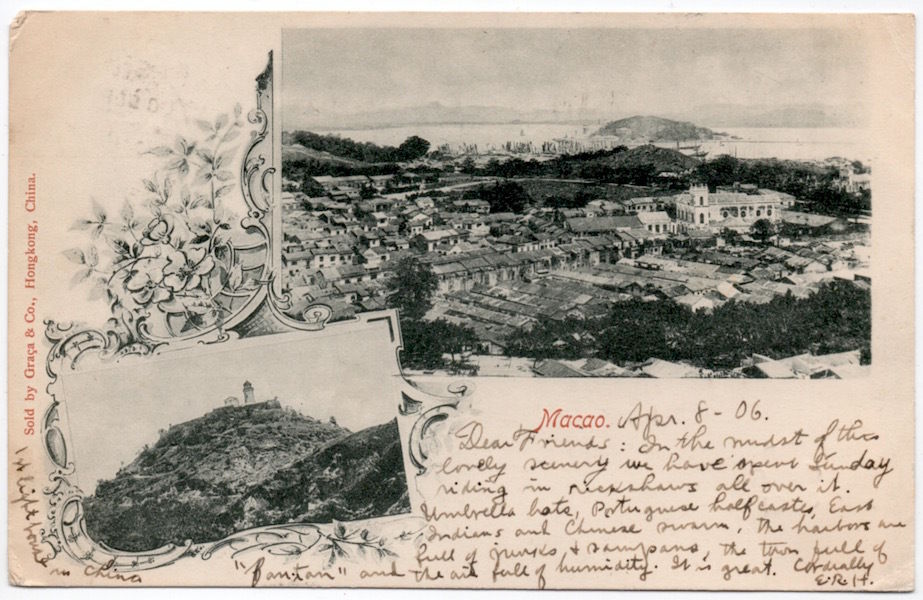 Sold by Graça & Co., Hongkong, China.
Macao. Apr. 8-06.
Dear Friends: In the midst of this
lovely scenery we have spent Sunday
riding in rickshaws all over it.
Umbrella hats, Portuguese halfcastes, East
Indians and Chinese swarm, the harbors are
full of junks, & sampans, the town full of
"Fantan" and the air full of humidity. It is great. Cordially
E.R.H.
in China